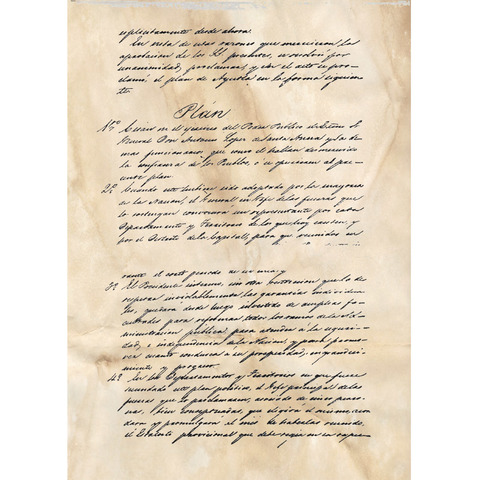 explicitamente desde ahora.
En vista de estas razones que merecieron la
aprobacion de los
unanimidad, proclamar, y en el acto se pro-
clamó el plan de Ayutla en la forma siguien-
te.
Plan
1º Cesan en el ejercicio del Poder Publico el Exmo. S.
General Don Antonio Lopez de Santa Anna y los de-
mas funcionarios, que como él hallan desmerecido
la confianza de los Pueblos, ó se opusieren al pre-
sente plan.
2º Cuando este hubiere sido adoptado por la mayoria
de la Nacion, el General en Gefe de las fuerzas que
lo sostengan convocará un representante por cada
Departamento y Territorio de los que hoy existen, y
por el Distrito de la Capital, para que reunidos en
rante el corto periodo de su encargo
3º El Presidente interino, sin otra restriccion que la de
respetar inviolablemente las garantias individua-
les, quedará desde luego investido de amplias fa-
cultades para reformar todos los ramos de la Ad-
ministracion publica, para atender á la seguri-
dad, é independencia de la Nacion, y para promo-
ver cuanto conduzca á su prosperidad, engrandeci-
miento y progreso.
4º En los Departamentos y Territorios en que fuere
secundado este plan politico, el Gefe principal de las
fuerzas que lo proclamaren, asociado de cinco perso-
nas, bien conceptuadas, que elegirá él mismo, acor-
dará y promulgará al mes de haberlas reunido,
el Estatuto provisional que debe regir en su respec-